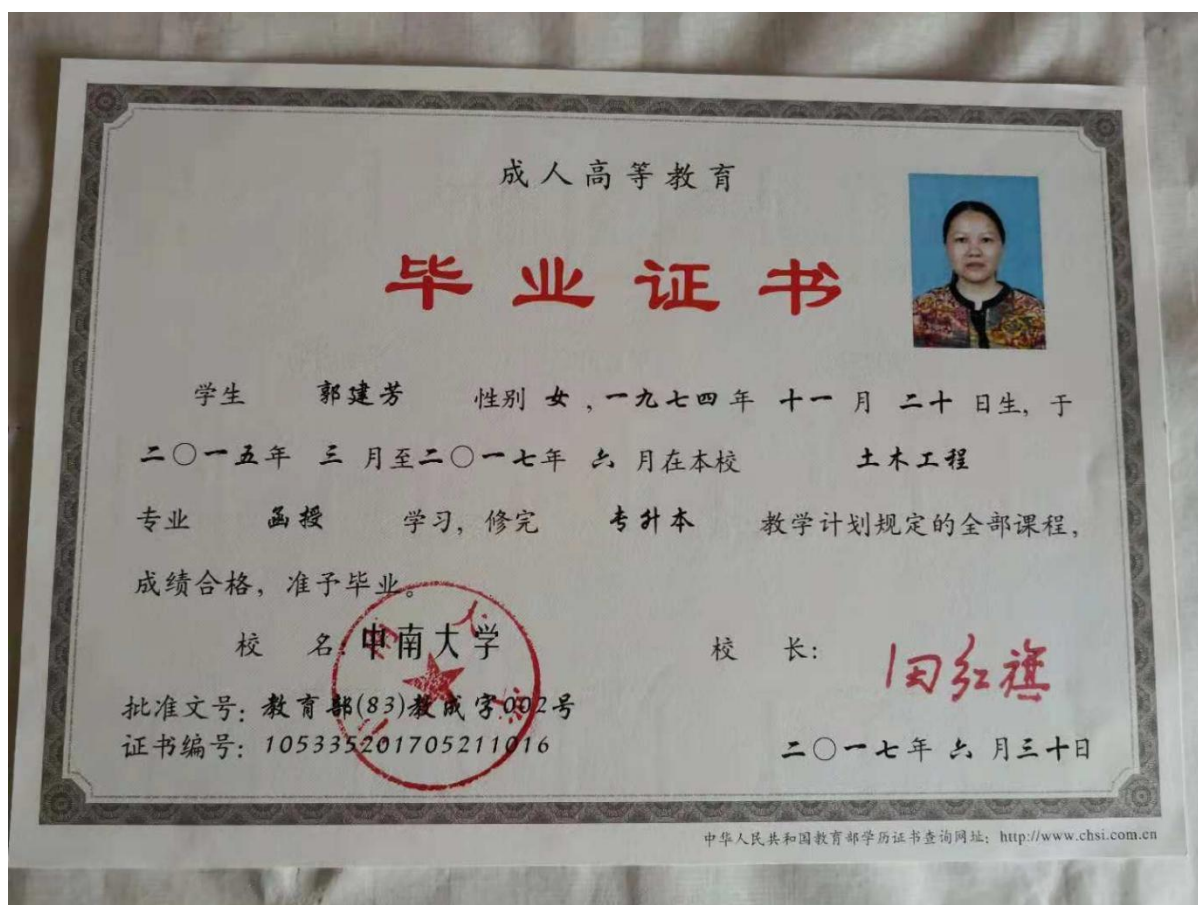 成人高等教育
毕业证书
学生 郭建芳 性别 女，一九七四年 十一 月 二十 日生，于
二〇一五年 三 月至二〇一七年 六 月在本校 土木工程
专业 函授 学习，修完 专升本 教学计划规定的全部课程，
成绩合格，准予毕业。
校 名：中南大学 校 长：田红旗
批准文号：教育部(83)教成字002号
证书编号：105335201705211016 二〇一七年 六 月三十日
中华人民共和国教育部学历证书查询网址：http://www.chsi.com.cn